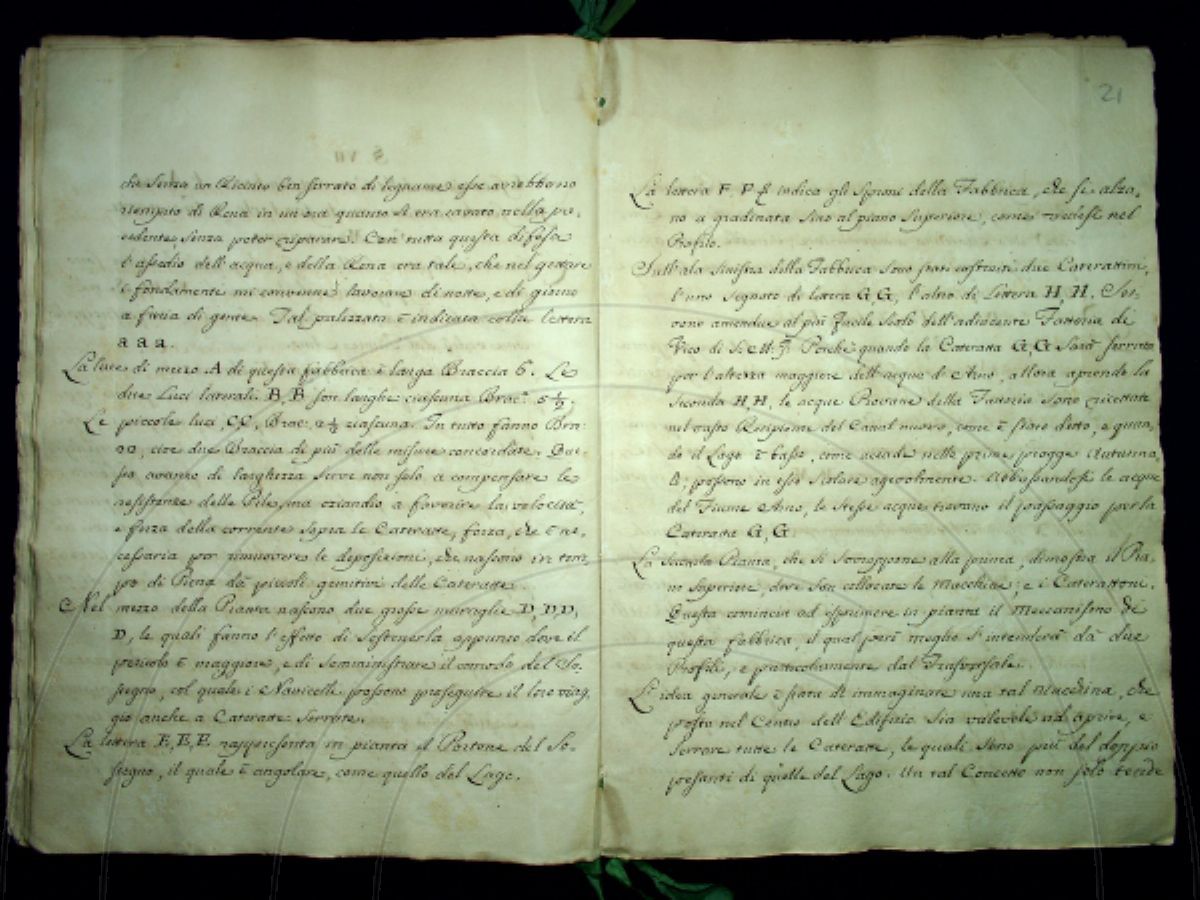 che senza un Recinto ben serrato di legname esse avrebbono
riempito di Rena in un ora quanto si era cavato nella pre-
cedente, senza poter riparare. Con tutta questa difesa
l'assedio dell'acqua, e della Rena era tale, che nel gettare
i fondamenti mi convenne lavorare di notte, e di giorno
a furia di gente. Tal palizzata è indicata colla lettera
a a a.
La luce di mezzo A di questa fabbrica è larga Braccia 6. Le
due Luci laterali B, B son larghe ciascuna Brac.ª 5½.
Le piccole luci, CC, Brac: ciascuna. In tutto fanno Bra:
20, cioè due Braccia di più delle misure concordate. Que-
sto avanzo di larghezza serve non solo a compensare le
resistenze delle Pile, ma eziandio a favorire la velocità,
e forza della corrente sopra le Cateratte, forza, che è ne-
cessaria per rimuovere le deposizioni, che nascono in tem-
po di Piena dà piccoli gemitivi delle Cateratte.
Nel mezzo della Pianta nascono due grosse muraglie D, D D,
D, le quali fanno l'effetto di sostenerla appunto dove il
pericolo è maggiore, e di somministrare il comodo del So-
stegno, col quale i Navicelli possono proseguire il loro viag-
gio anche a Cateratte serrate.
La lettera E, E, E rappresenta in pianta il Portone del So-
stegno, il quale è angolare, come quello del Lago.
21
La lettera F, F, F indica gli Speroni della Fabbrica, che si alza-
no a gradinata sino al piano superiore, come vedesi nel
Profilo.
Sull'ala sinistra della Fabbrica sono stati costruiti due Caterattini,
l'uno segnato di lettera G G, l'altro di Lettera H, H. Ser-
vono amendue al più facile scolo dell'adiacente Fattoria di
Vico di S: M: Poichè quando la Cateratta G, G sarà serrata
per l'altezza maggiore dell'acque di Arno, allora aprendo la
seconda H, H, le acque Piovane della Fattoria sono ricettate
nel vasto Recipiente del Canal nuovo, come è stato detto, e quan-
do il Lago è basso, come accade nelle prime piogge Autunna-
li, possono in esso scolare agevolmente. Abbassandosi le acque
del Fiume Arno, le stesse acque trovano il passaggio per la
Cateratta G, G.
La seconda Pianta, che si sovrappone alla prima, dimostra il Pia-
no superiore, dove son collocate le Macchine, e i Caterattoni.
Questa comincia ad esprimere in pianta il Meccanismo di
questa fabbrica, il qual però meglio s'intenderà dà due
Profili, e particolarmente dal Trasversale.
L'idea generale è stata di immaginare una tal Macchina, che
posta nel Centro dell'Edifizio sia valevole ad aprire, e
serrare tutte le Cateratte, le quali sono più del doppio
pesanti di quelle del Lago. Un tal Concetto non solo tende